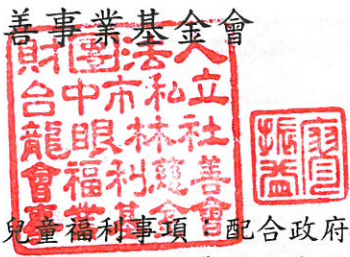 善事業基金會
財團法人
台中市私立
龍眼林社
會福利慈善
事業基金會
振益
兒童福利事項：配合政府